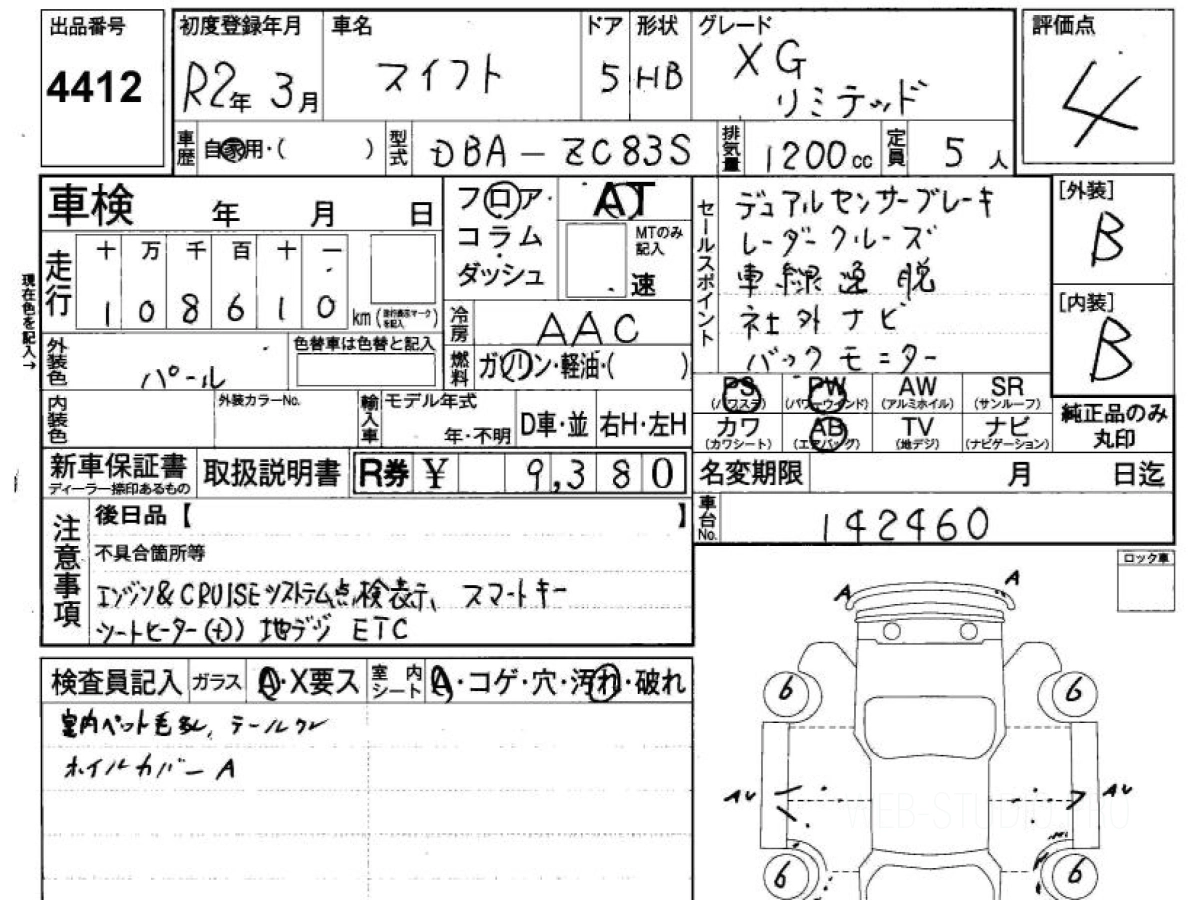 出品番号
4412
初度登録年月
R2年 3月
車名
スイフト
ドア
5
形状
HB
グレード
XG
リミテッド
評価点
4
車歴
自家用・( )
型式
DBA-ZC83S
排気量
1200cc
定員
5人
車検 年 月 日
走行
十 万 千 百 十 一
1 0 8 6 1 0 km
現在色を記入→
外装色
パール
色替車は色替と記入
内装色
外装カラーNo.
フロア・
コラム
ダッシュ
AT
MTのみ
記入
速
冷房
AAC
燃料
ガソリン・軽油・( )
輸入車
モデル年式
年・不明
D車・並
右H・左H
セールスポイント
デュアルセンサーブレーキ
レーダークルーズ
車線逸脱
社外ナビ
バックモニター
[外装]
B
[内装]
B
PS
(パワステ)
PW
(パワーウインド)
AW
(アルミホイル)
SR
(サンルーフ)
カワ
(カワシート)
AB
(エアバッグ)
TV
(地デジ)
ナビ
(ナビゲーション)
純正品のみ
丸印
新車保証書
ディーラー捺印あるもの
取扱説明書
R券 ¥ 9,380
名変期限 月 日迄
車台No.
142460
注意事項
後日品【 】
不具合箇所等
エンジン&CRUISEシステム点検表示、スマートキー
シートヒーター(+) 地デジ ETC
ロック車
検査員記入
ガラス
A・X要ス
室内シート
A・コゲ・穴・汚れ・破れ
室内ペット毛多し、テールワレ
ホイルカバーA
A
A
6
6
AU
AU
6
6
WEB-STUDIO.RU